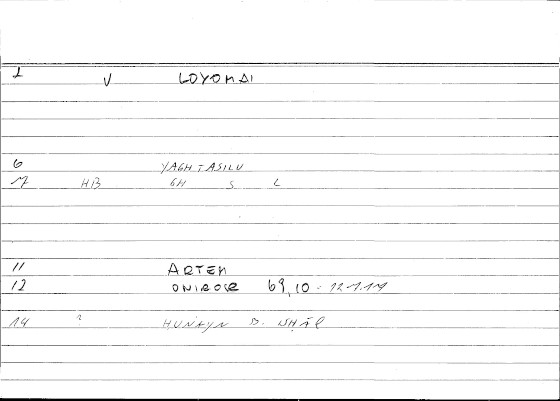 1 V LOYOMAI
6 YAGHTASILU
17 HB GH S L
11 ARTEM
12 ONIROCR 69,10 - 12.1.119
14 ? HUNAYN B. ISHĀQ